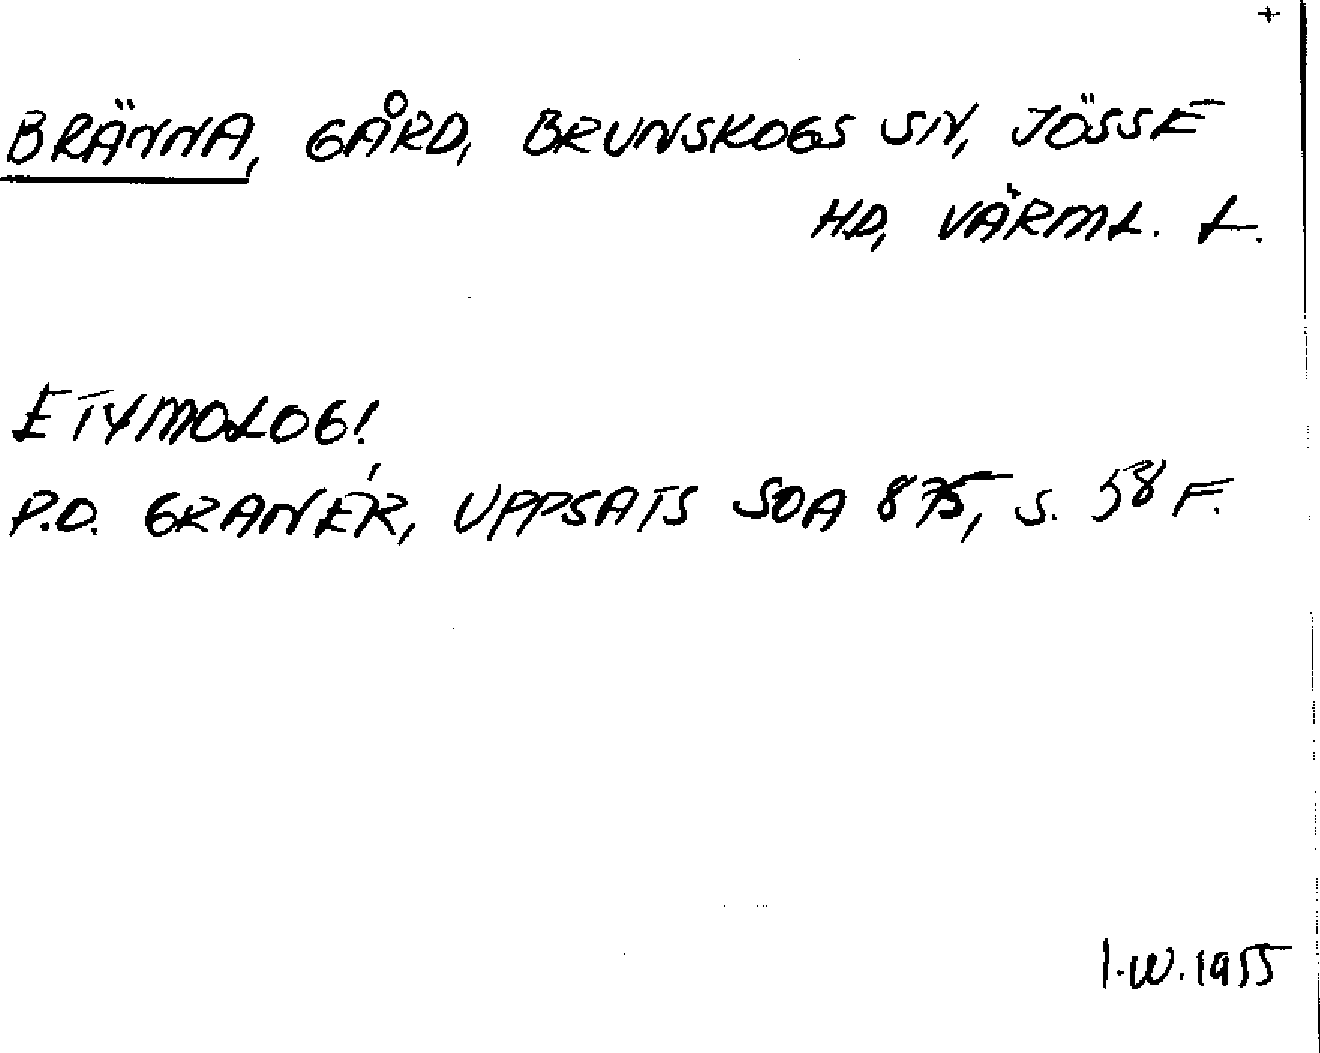 +
BRÄNNA, GÅRD, BRUNSKOGS SN, JÖSSE
HD, VÄRML. L.
ETYMOLOGI
P.O. GRANÉR, UPPSATS SOA 875, S. 58 F.
I.W. 1955